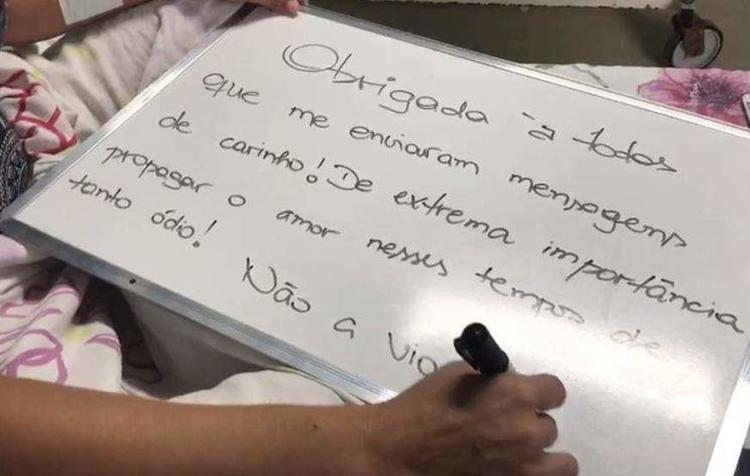 Obrigada à todos
que me enviaram mensagens
de carinho! De extrema importância
propagar o amor nesses tempos de
tanto ódio!
Não a vio